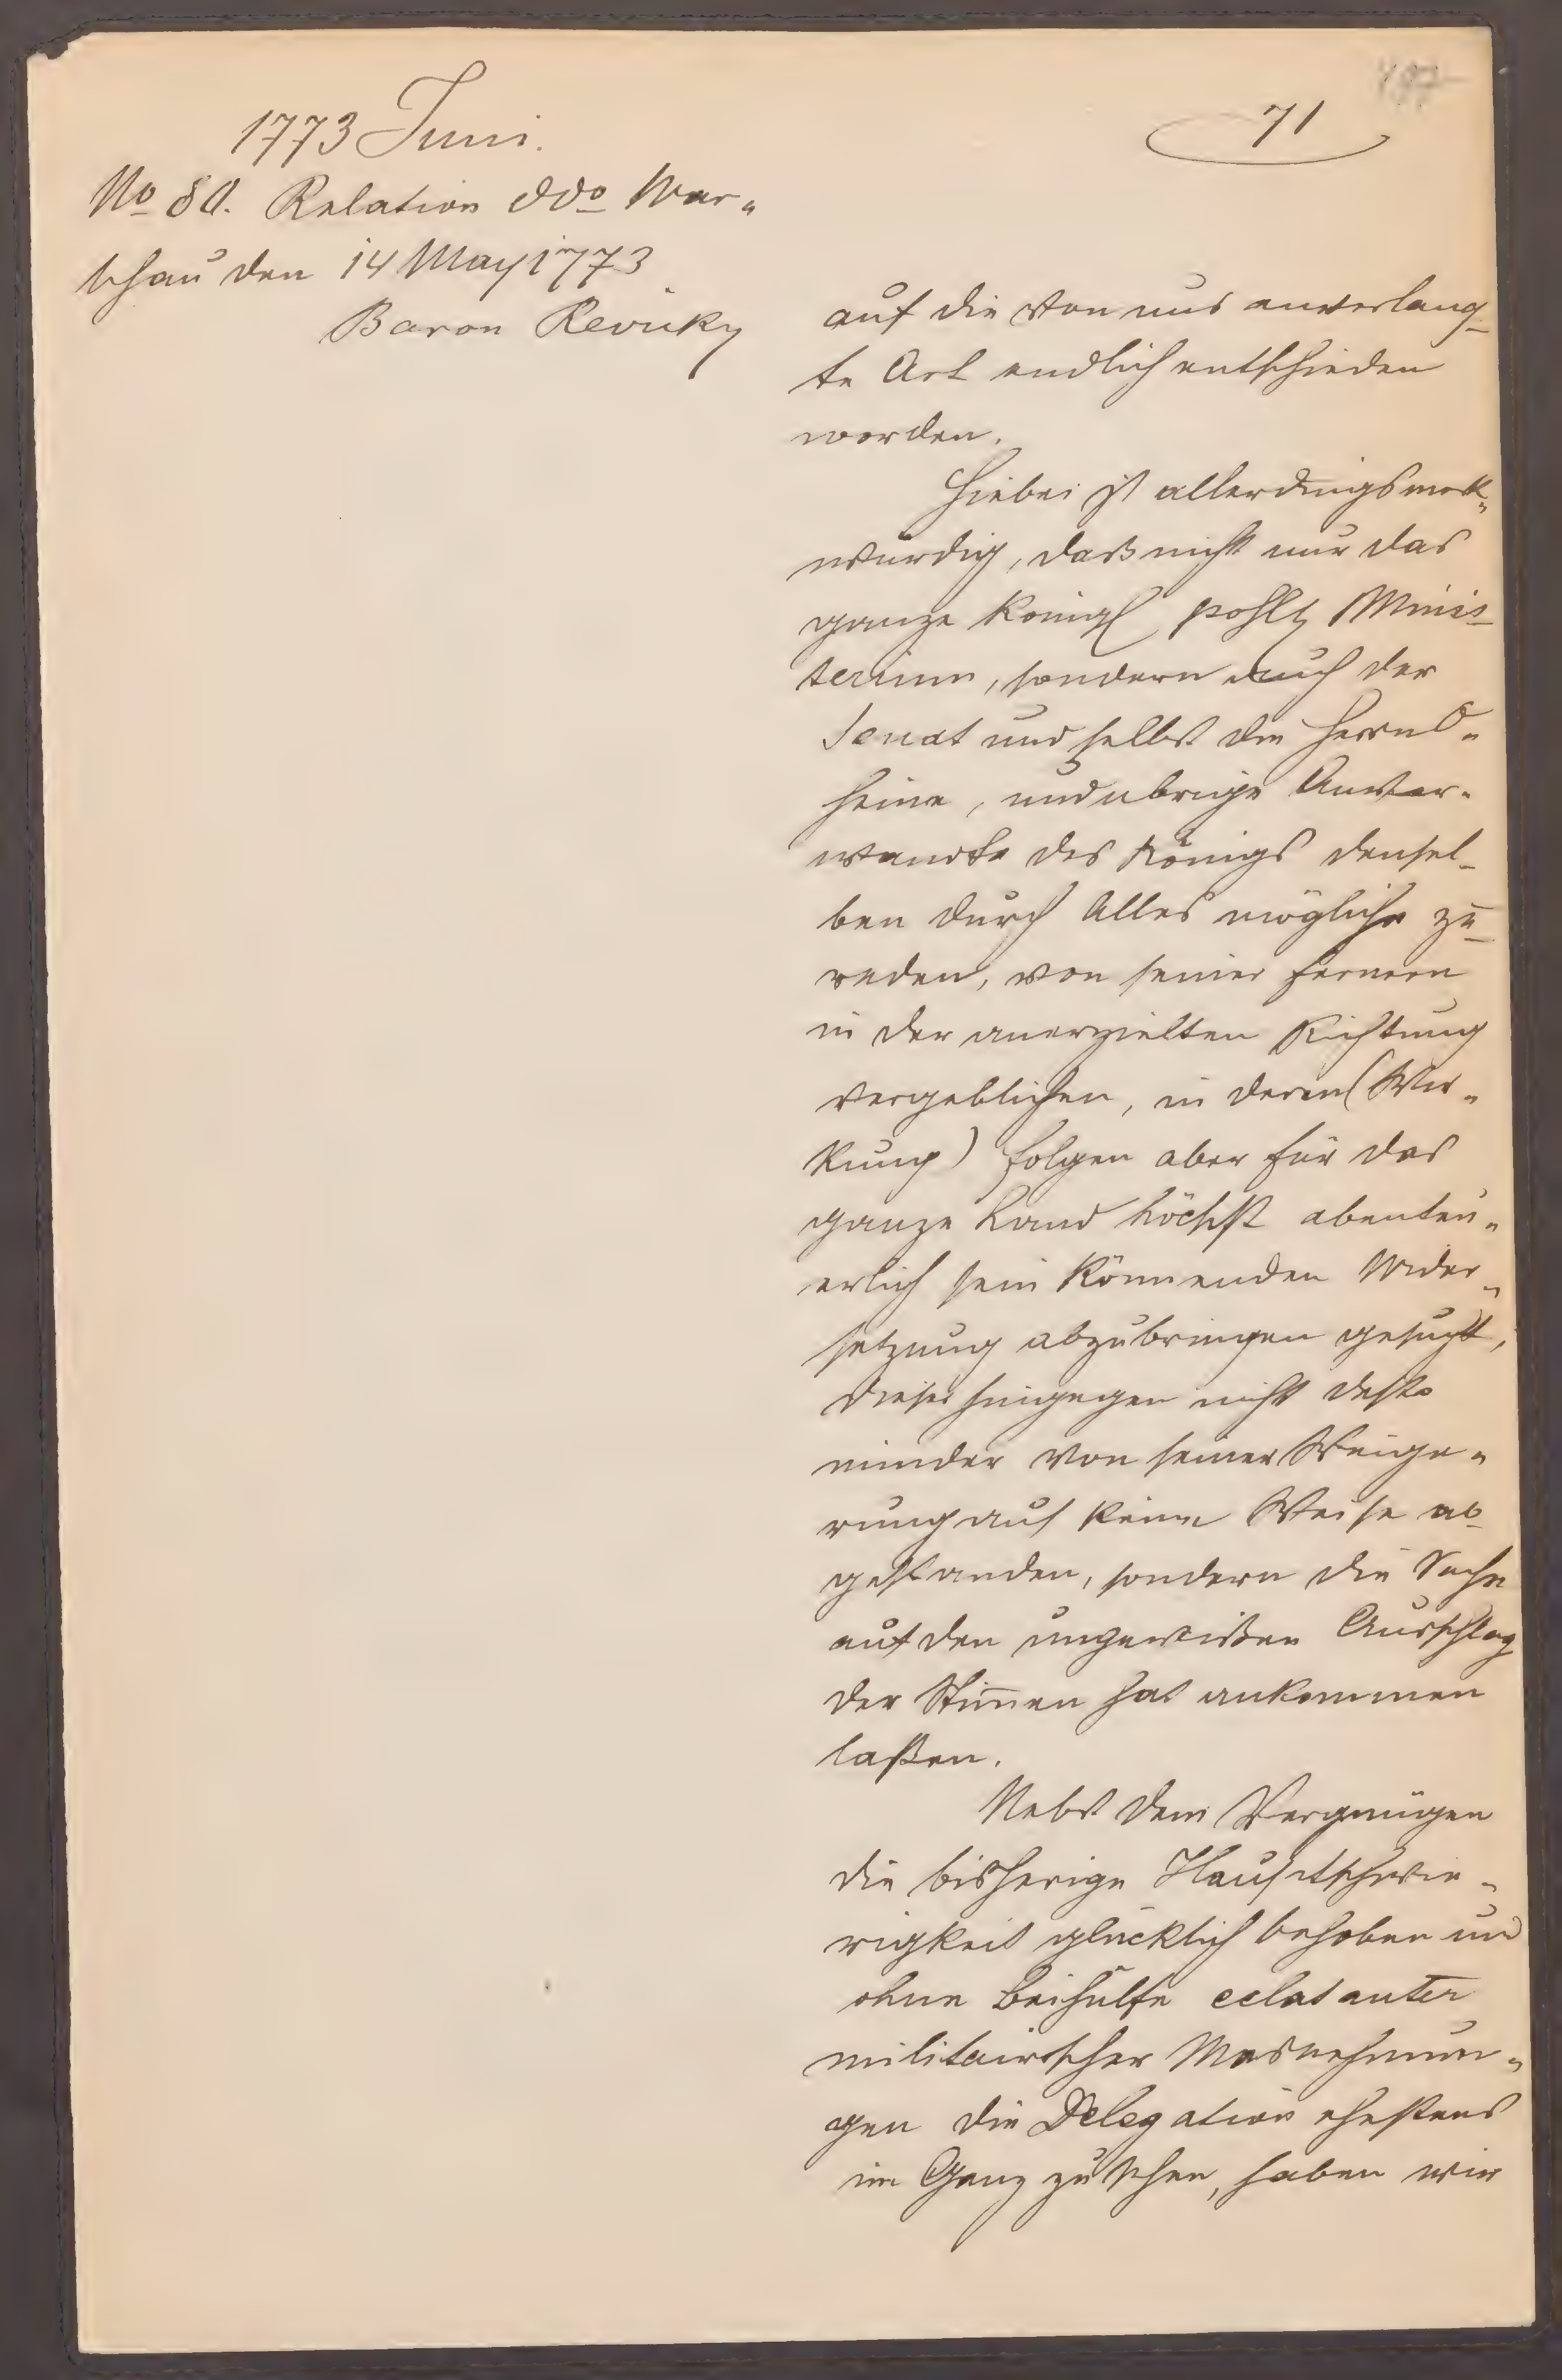 1773 Juni.
71
No 80. Relation ddo War„
schau den 14 May 1773
Baron Revicky
auf die von uns anverlang-
te Art endlich entschieden
worden.
Hiebei ist allerdings merk„
würdig, daß nicht nur das
ganze Königl pohl Minis-
terium, sondern auch der
Senat und selbst die Herrn O„
heime, und übrige Anver„
wandte des Königs densel-
ben durch Alles mögliche zu-
reden, von seiner fernern
in der anerzielten Richtung
vergeblichen, in deren (Wir„
kung) folgen aber für das
ganze Land höchst abenteu„
erlich sein könnenden Wider„
setzung abzubringen gesucht,
dieser hingegen nicht desto
minder von seiner Weige„
rung auf keine Weise ab-
gestanden, sondern die Sache
auf den ungewißen Ausschlag
der Stimen hat ankommen
laßen.
Nebst dem Vergnügen
die bisherige Hauptschwie„
rigkeit glücklich behoben und
ohne Beihülfe eclatanter
militairischer Masnehmun„
gen die Delegation ehestens
im Gang zu sehen, haben wir